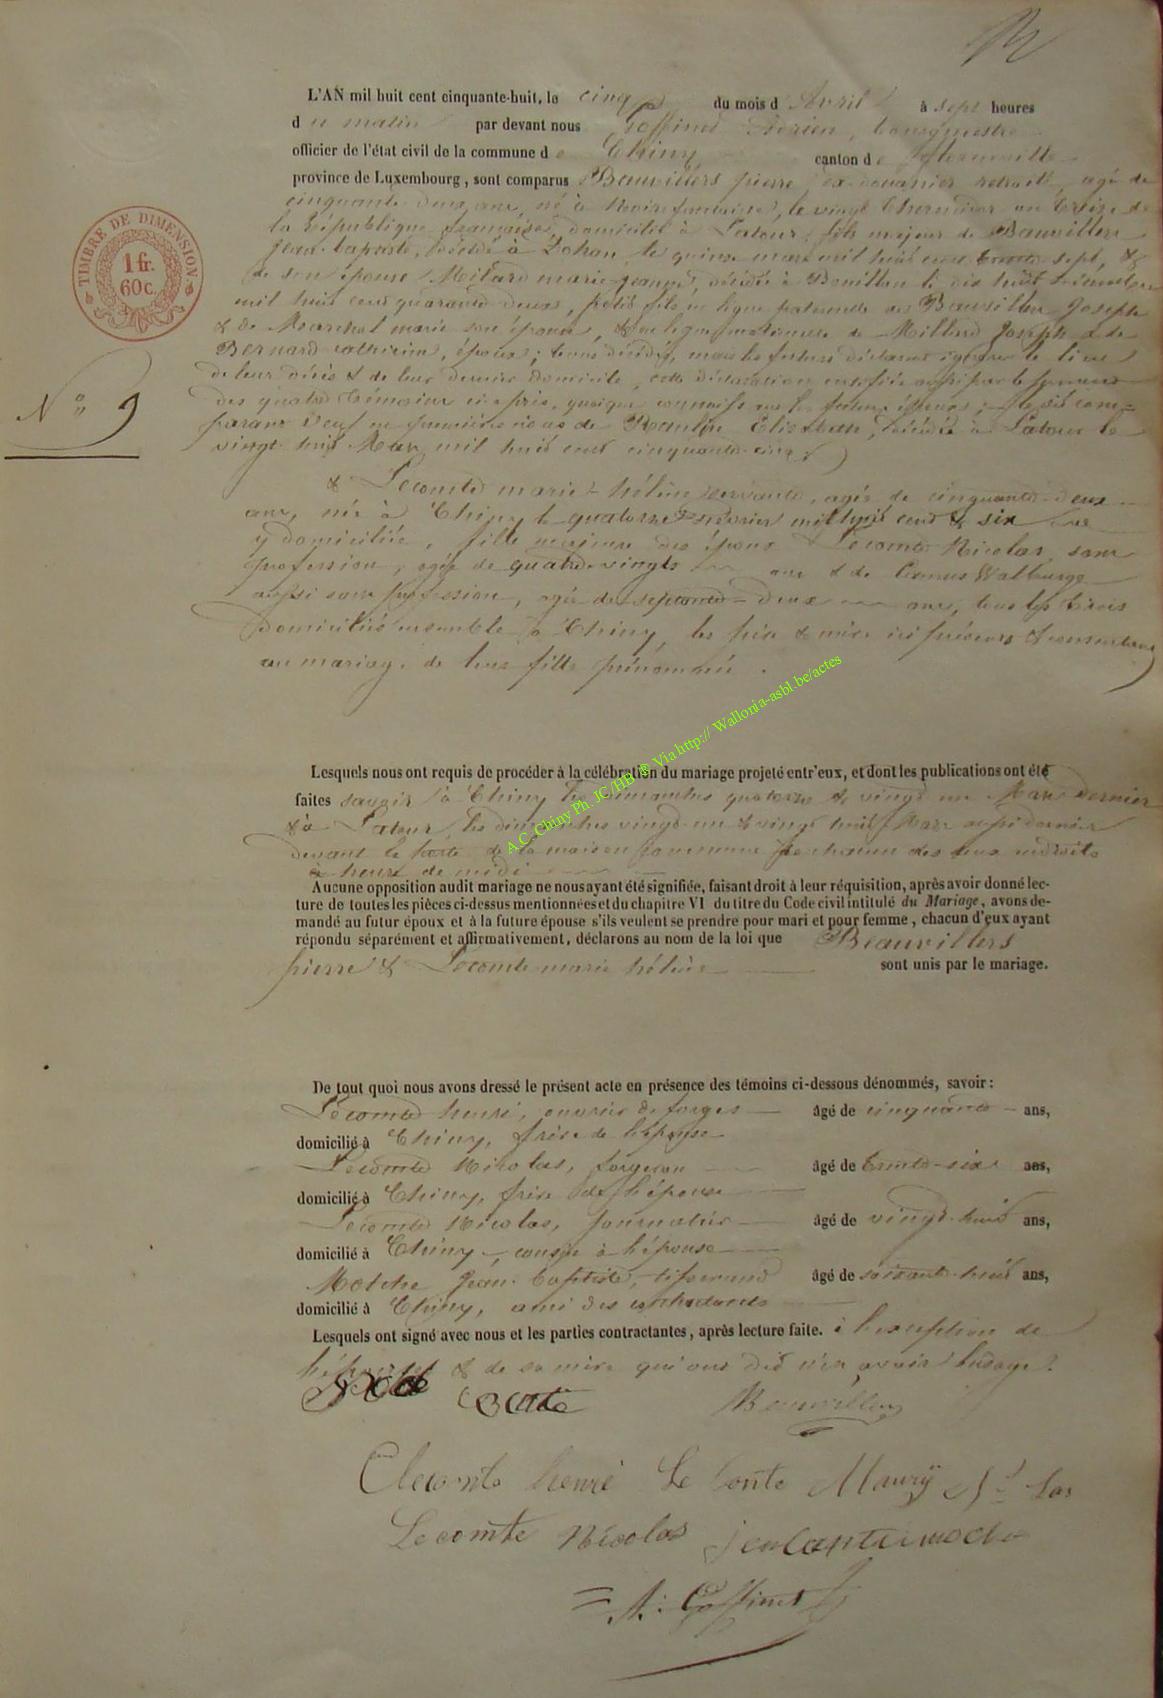 L'AN mil huit cent cinquante-huit, le cinq du mois d'Avril à sept heures
d u matin par devant nous Goffinet Adrien, bourgmestre
officier de l'état civil de la commune d e Chiny canton d e Florenville
province de Luxembourg, sont comparus Beauvillers pierre, ex-douanier retraité, agé de
cinquante deux ans, né à Noirefontaine, le vingt Thermidor an treize de
la République française, domicilié à Latour, fils majeur de Bauvillers
Jean-baptiste, décédé à Dohan le quinze mars mil huit cent trente sept, &
de son épouse Milard marie-jeanne, décédée à Bouillon le dix huit
mil huit cent quarante deux, petit fils en ligne paternelle de Bauvillers Joseph
& de Marchal marie son épouse, & en ligne maternelle de Millard Joseph & de
Bernard catherine, époux; tous décédés, mais le futur déclarant ignorer le lieu
de leur décès & de leur dernier domicile, cette déclaration certifiée aussi par le serment
des quatre témoins ci-après, quoique connaissant les futurs époux; le dit com-
parant veuf en premières noces de Raulin Elisabeth, décédée à Latour le
vingt huit Mars mil huit cent cinquante-cinq,
& Lecomte marie-hélène servante, agée de cinquante-deux
ans, née à Chiny le quatorze février mil huit cent & six
y domiciliée, fille majeure des époux Lecomte Nicolas, sans
profession, agé de quatre-vingts ans & de Walburge
aussi sans profession, agée de septante-deux ans, tous les trois
domiciliés ensemble à Chiny, les père & mère ici présents & consentans
au mariage de leur fille prénommée.
Lesquels nous ont requis de procéder à la célébration du mariage projeté entr'eux, et dont les publications ont été
faites savoir à Chiny les dimanches quatorze & vingt un Mars dernier
& à Latour, les dimanches vingt-un & vingt huit Mars aussi dernier
devant la porte de la maison commune de chacun des deux endroits
à heure de midi
Aucune opposition audit mariage ne nous ayant été signifiée, faisant droit à leur réquisition, après avoir donné lec-
ture de toutes les pièces ci-dessus mentionnées et du chapitre VI du titre du Code civil intitulé du Mariage, avons de-
mandé au futur époux et à la future épouse s'ils veulent se prendre pour mari et pour femme, chacun d'eux ayant
répondu séparément et affirmativement, déclarons au nom de la loi que Beauvillers
pierre & Lecomte marie hélène sont unis par le mariage.
De tout quoi nous avons dressé le présent acte en présence des témoins ci-dessous dénommés, savoir:
Lecomte henri, ouvrier de forges âgé de cinquante ans,
domicilié à Chiny, frère de l'épouse
Lecomte Nicolas, forgeron âgé de trente-six ans,
domicilié à Chiny, frère de l'épouse
Lecomte Nicolas, journalier âgé de vingt-huit ans,
domicilié à Chiny, cousin à l'épouse
Jean-baptiste, tisserand âgé de soixante-huit ans,
domicilié à Chiny, ami des contractants
Lesquels ont signé avec nous et les parties contractantes, après lecture faite. à l'exception de
l'épouse & de sa mère qui ont dit n'en avoir l'usage.
Beauvillers
Lecomte henri
Lecomte Nicolas
A. Goffinet
N° 9
TIMBRE DE DIMENSION
1 fr.
60 c.
A.C. Chiny Ph. JC/HB © Via http:// Wallonia-asbl.be/actes